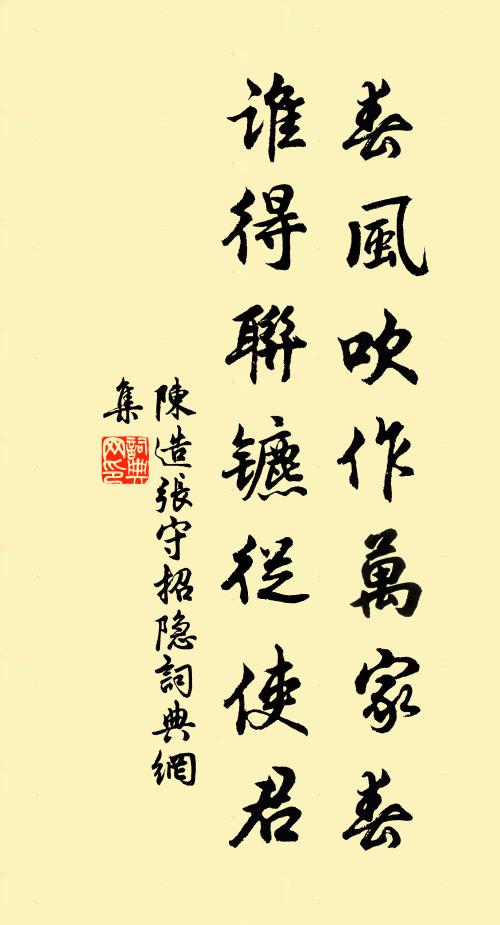 春風吹作萬家春
誰得聯鑣從使君
陳造張守招隐詞典網
集
詞典網印